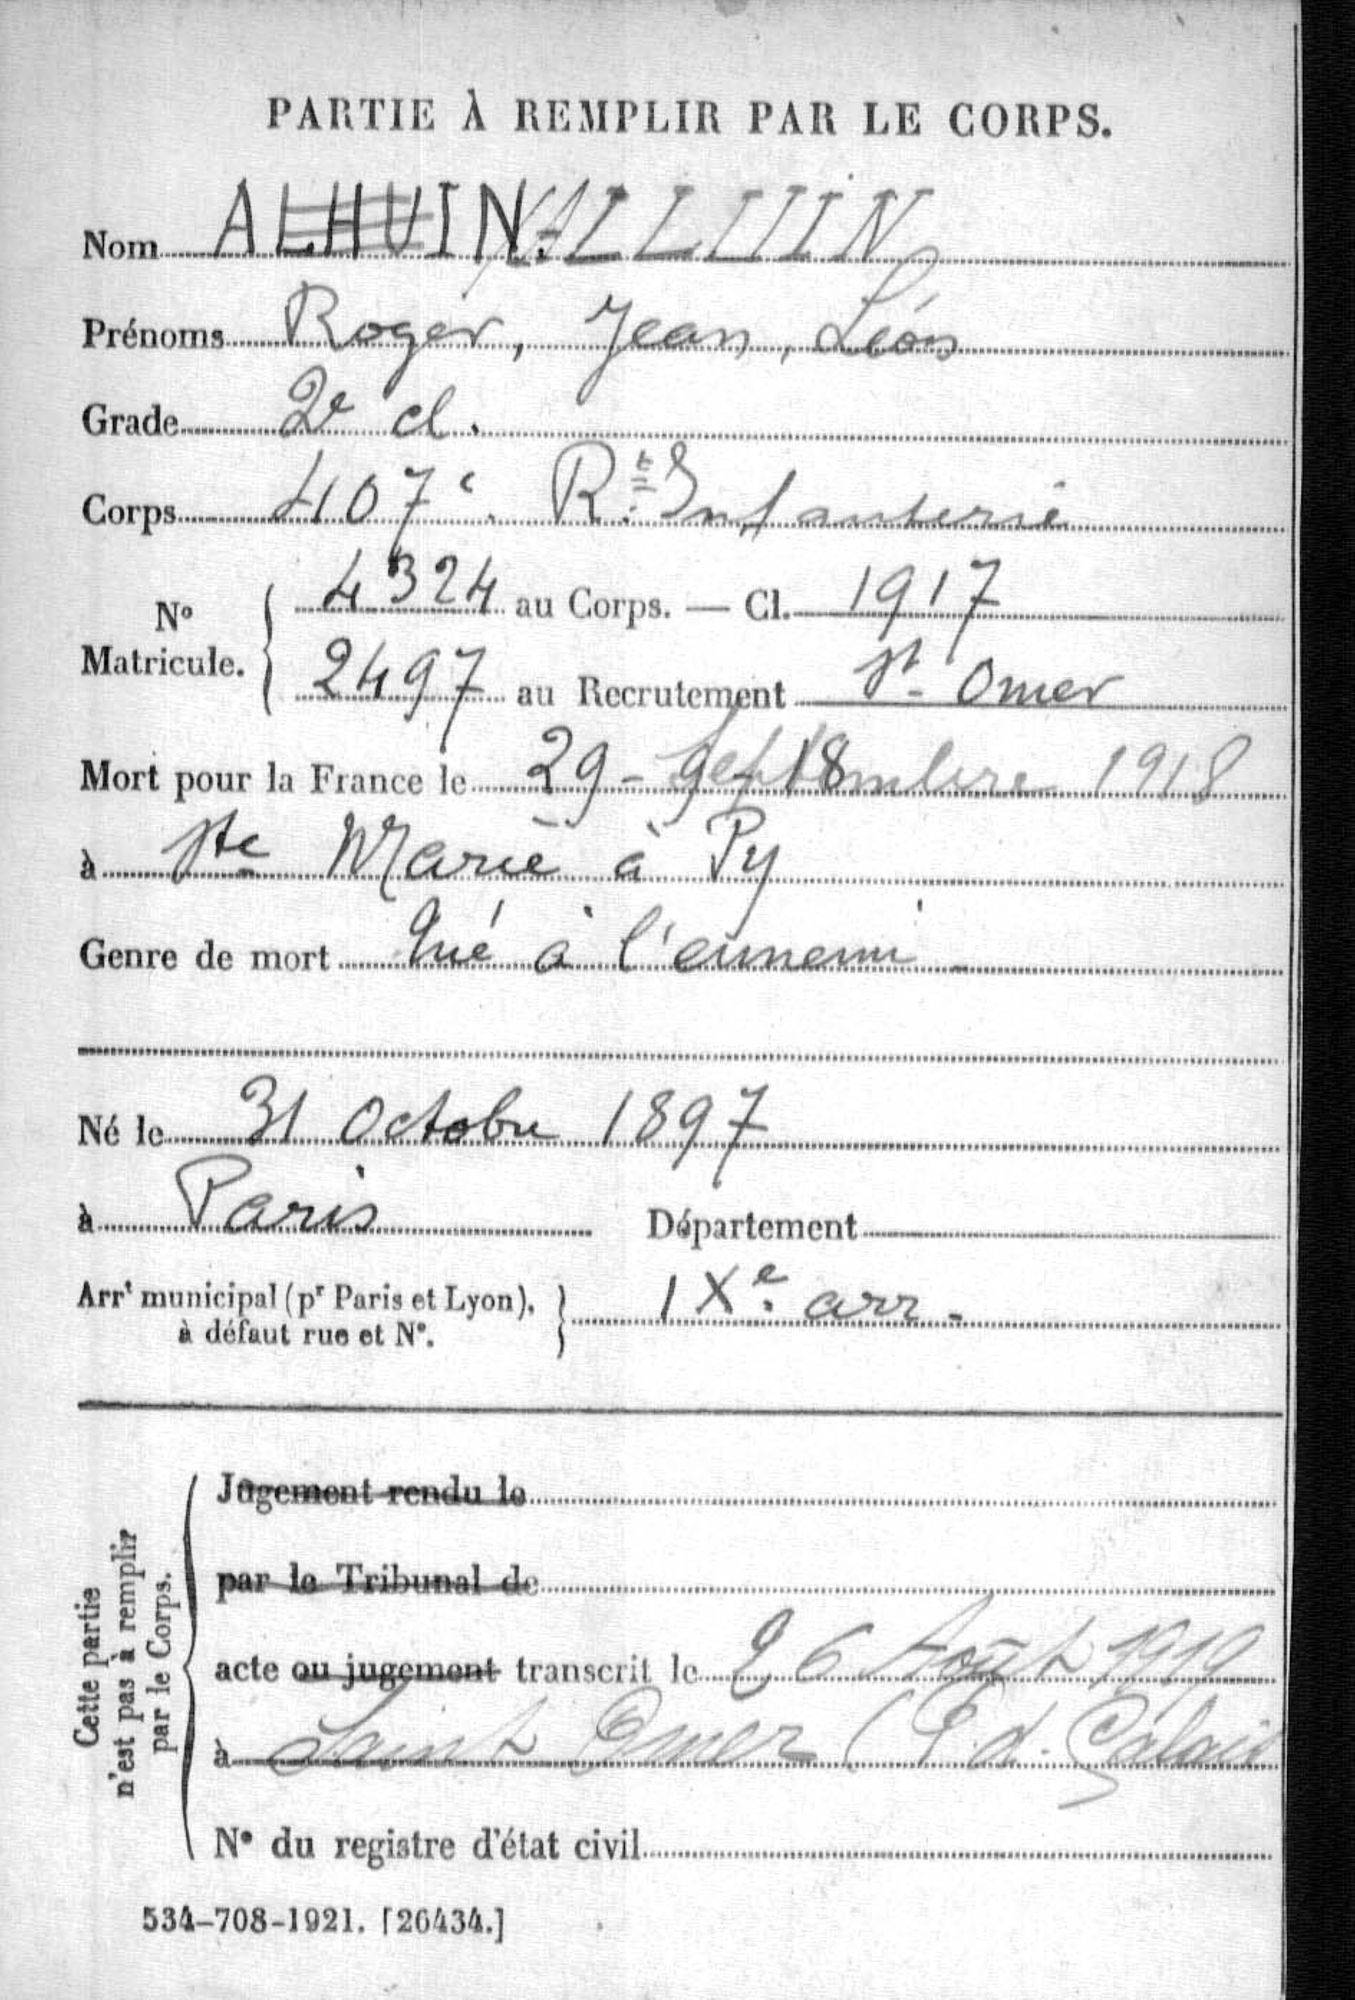 PARTIE À REMPLIR PAR LE CORPS.
Nom ALHUIN. ALLUIN
Prénoms Roger, Jean, Léon
Grade 2e cl.
Corps 407e. Rt. Infanterie
No Matricule. 4324 au Corps. — Cl. 1917
2497 au Recrutement St-Omer
Mort pour la France le 29-9-18 Septembre 1918
à Ste Marie à Py
Genre de mort tué à l'ennemi
Né le 31 Octobre 1897
à Paris Département
Arrt municipal (pr Paris et Lyon), IXe. arr.
à défaut rue et No.
Cette partie
n'est pas à remplir
par le Corps.
Jugement rendu le
par le Tribunal de
acte ou jugement transcrit le 26 Août 1919
à Saint Omer (P. d. Calais
No du registre d'état civil
534-708-1921. [26434.]